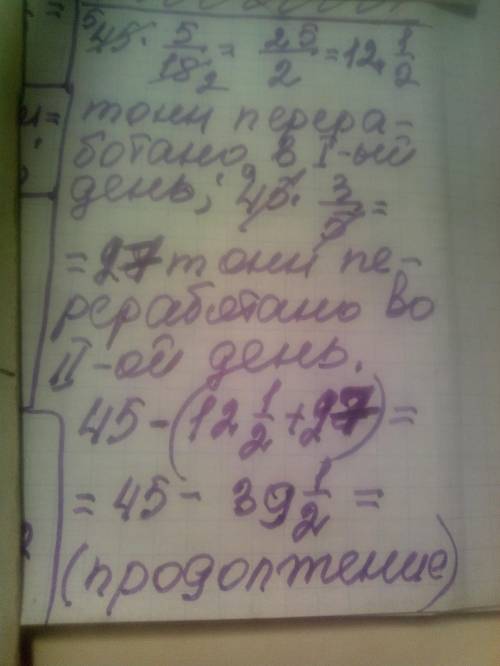 ⁵45 · 5/18₂ = 25/2 = 12 1/2
тонн перера-
ботано в I-ый
день; ⁹45 · 3/5 =
= 27 тонн пе-
реработано во
II-ой день.
45 - (12 1/2 + 27) =
= 45 - 39 1/2 =
(продолжение)